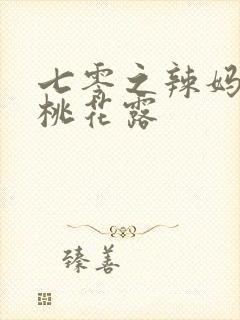 七零之辣妈
桃花露
臻善